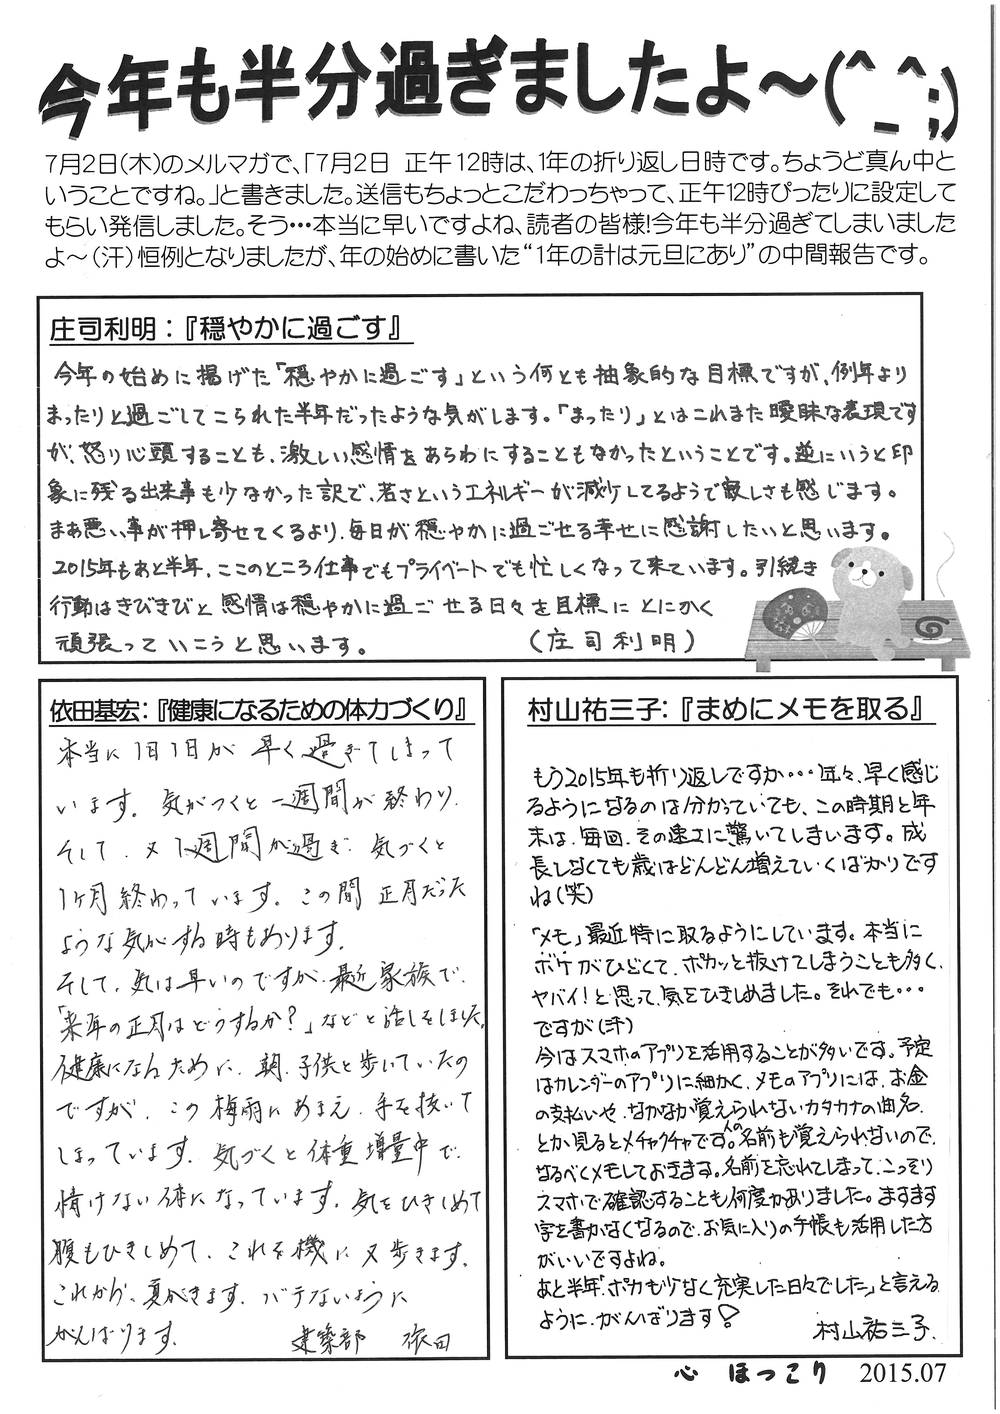 今年も半分過ぎましたよ～(^_^;)
7月2日(木)のメルマガで、「7月2日 正午12時は、1年の折り返し日時です。ちょうど真ん中と
いうことですね。」と書きました。送信もちょっとこだわっちゃって、正午12時ぴったりに設定して
もらい発信しました。そう…本当に早いですよね、読者の皆様!今年も半分過ぎてしまいました
よ～(汗)恒例となりましたが、年の始めに書いた“1年の計は元旦にあり”の中間報告です。
庄司利明：『穏やかに過ごす』
今年の始めに掲げた「穏やかに過ごす」という何とも抽象的な目標ですが、例年より
まったりと過ごしてこられた半年だったような気がします。「まったり」とはこれまた曖昧な表現です
が、怒り心頭することも、激しい感情をあらわにすることもなかったということです。逆にいうと印
象に残る出来事も少なかった訳で、若さというエネルギーが減ケしてるようで寂しさも感じます。
まあ悪い事が押し寄せてくるより、毎日が穏やかに過ごせる幸せに感謝したいと思います。
2015年もあと半年、ここのところ仕事でもプライベートでも忙しくなって来ています。引続き
行動はきびきびと感情は穏やかに過ごせる日々を目標にとにかく
頑張っていこうと思います。 (庄司利明)
依田基宏：『健康になるための体力づくり』
本当に1日1日が早く過ぎてしまって
います。気がつくと一週間が終わり、
そして、又1週間が過ぎ、気づくと
1ヶ月終わっています。この間正月だった
ような気がする時もあります。
そして、気は早いのですが、最近家族で、
「来年の正月はどうするか?」などと話しをしました。
健康になるために、朝、子供と歩いていたの
ですが、この梅雨にめまえ、手を抜いて
しまっています。気づくと体重増量中で、
情けない体になっています。気をひきしめて
腹もひきしめて、これを機に又歩きます。
これから、夏がきます。バテないように
がんばります。 建築部 依田
村山祐三子：『まめにメモを取る』
もう2015年も折り返しですか・・・年々、早く感じ
るようになるのは分かっていても、この時期と年
末は、毎回、その速さに驚いてしまいます。成
長しなくても歳はどんどん増えていくばかりです
ね(笑)
「メモ」最近特に取るようにしています。本当に
ボケがひどくて、ポカッと抜けてしまうことも多く、
ヤバイ!と思って、気をひきしめました。それでも・・・
ですが(汗)
今はスマホのアプリを活用することが多いです。予定
はカレンダーのアプリに細かく、メモのアプリには、お金
の支払いや、なかなか覚えられないカタカナの曲名、
とか見るとメチャクチャです。人の名前も覚えられないので、
なるべくメモしておきます。名前を忘れてしまって、こっそり
スマホで確認することも何度かありました。ますます
字を書かなくなるので、お気に入りの手帳も活用した方
がいいですよね。
あと半年「ポカも少なく充実した日々でした」と言える
ように、がんばります!
村山祐三子
心 ほっこり 2015.07